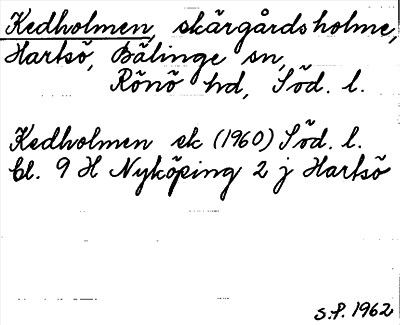 Kedholmen, skärgårdsholme,
Hartsö, Bälinge sn,
Rönö hd, Söd. l.
Kedholmen ek (1960) Söd. l.
Bl. 9 H Nyköping 2 j Hartsö
S.P. 1962